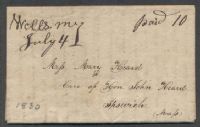 Wells Me paid 10
July 4
Miss Mary Heard
Care of Hon John Heard
Ipswich
Mass
1830